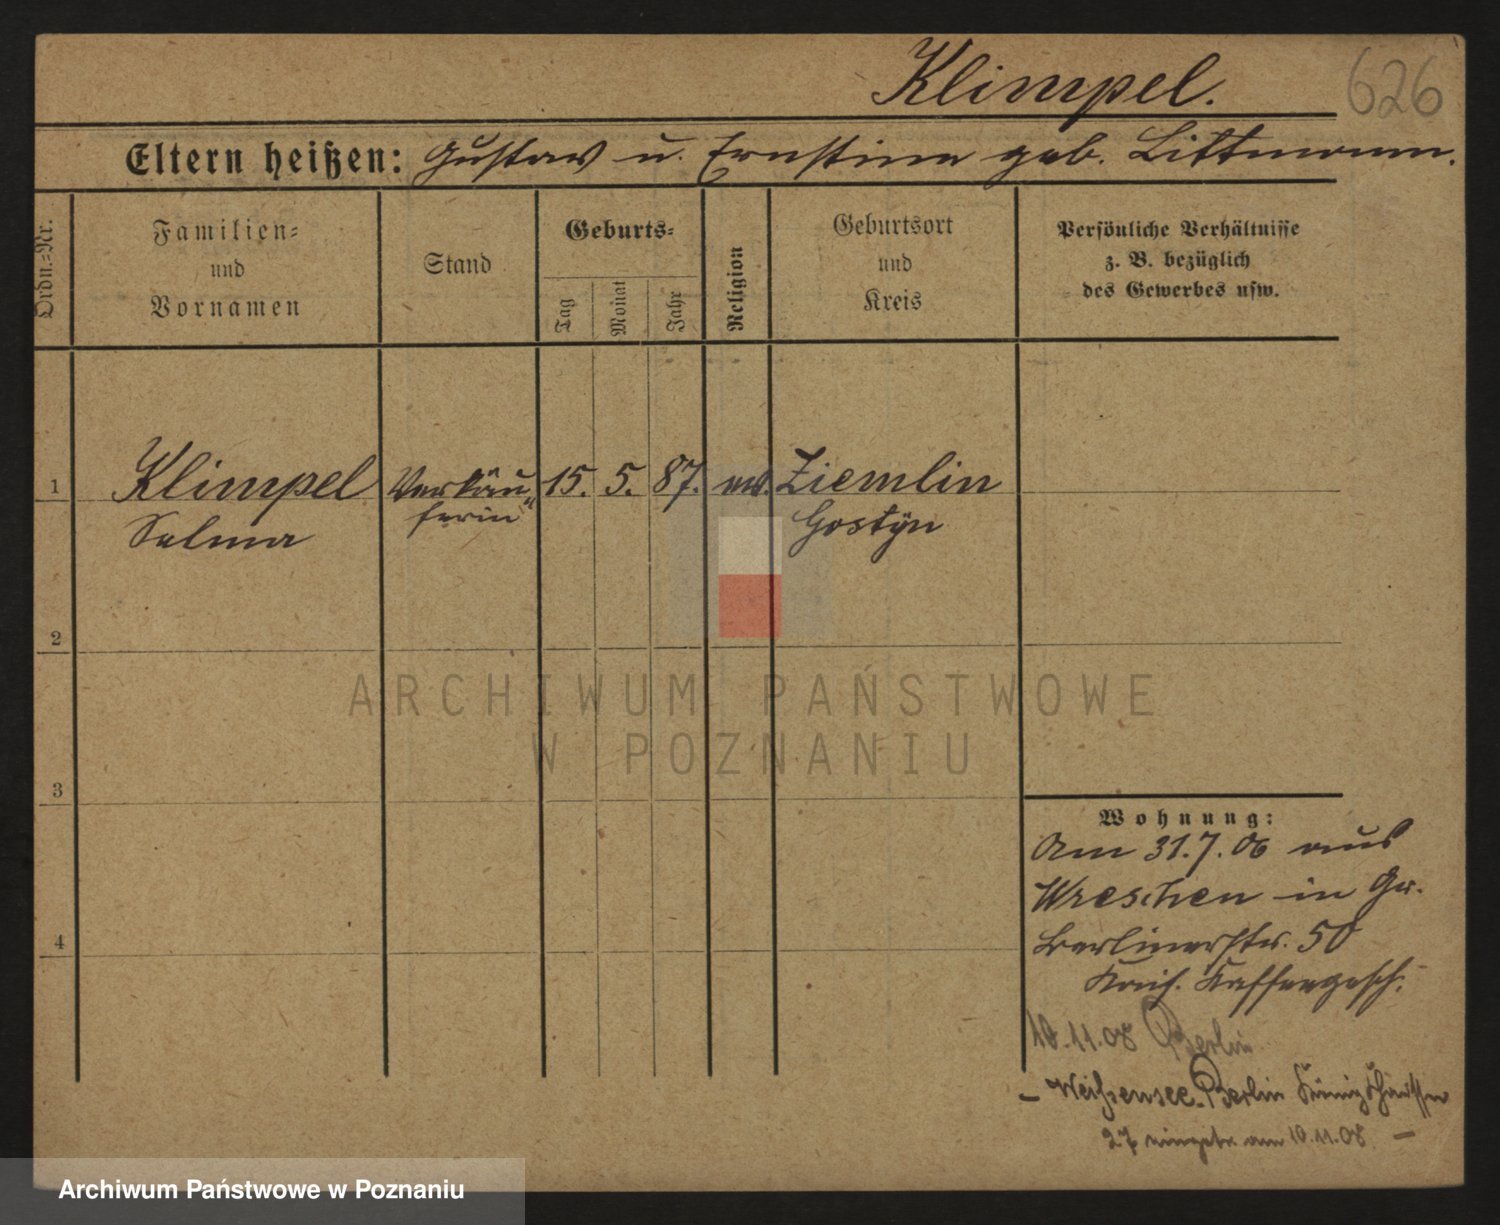 Klimpel.
626
Eltern heißen: Gustav u. Ernstine geb. Littmann.
Ordn.-Nr.
Familien- und Vornamen
Stand
Geburts-
Tag
Monat
Jahr
Religion
Geburtsort und Kreis
Persönliche Verhältnisse
z. B. bezüglich
des Gewerbes usw.
1 Klimpel Verkäu- 15. 5. 87. ev. Ziemlin
Selma ferin Gostÿn
2
3
4
Wohnung:
Am 31.7.06 aus
Wreschen in Gr.
Berlinerstr. 50
Kais. Kaffeegesch.
10.11.08 Berlin
– Weißensee-Berlin
27 am 10.11.08 –
ARCHIWUM PAŃSTWOWE
W POZNANIU
Archiwum Państwowe w Poznaniu